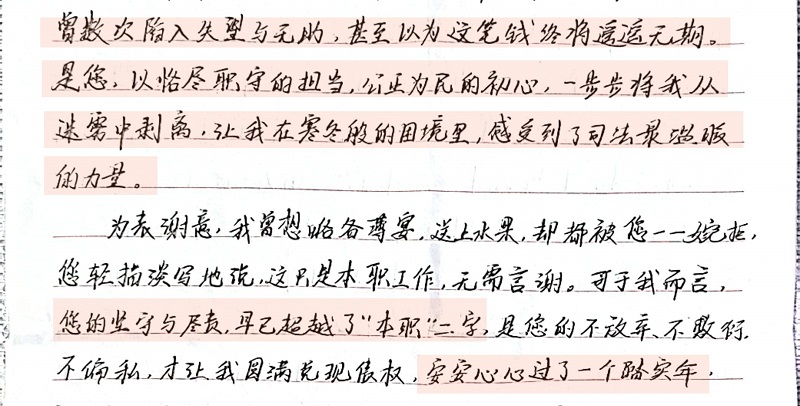 曾数次陷入失望与无助，甚至以为这笔钱终将遥遥无期。
是您，以恪尽职守的担当，公正为民的初心，一步步将我从
迷雾中剥离，让我在寒冬般的困境里，感受到了司法最温暖
的力量。
为表谢意，我曾想略备薄宴，送上水果，却都被您一一婉拒，
您轻描淡写地说，这只是本职工作，无需言谢。可于我而言，
您的坚守与尽责，早已超越了“本职”二字，是您的不放弃、不敷衍、
不偏私，才让我圆满兑现债权，安安心心过了一个踏实年，